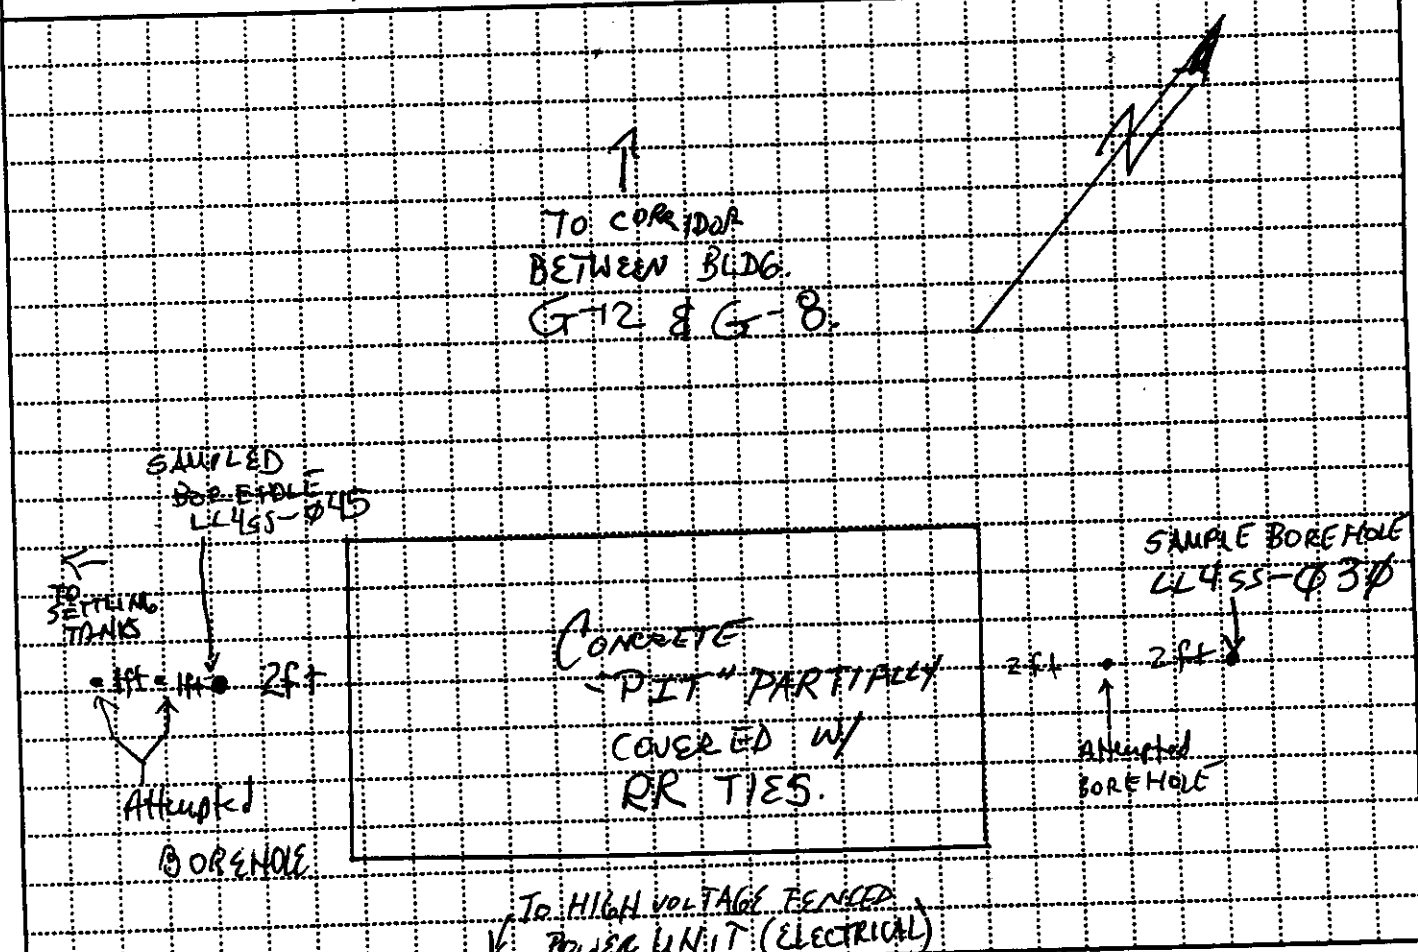 N
TO CORRIDOR
BETWEEN BLDG.
G-12 & G-8.
SAMPLED
BOREHOLE
LL4SS-Ø45
TO
SETTLING
TANKS
1ft 1ft 2ft
Attempted
BOREHOLE
CONCRETE
"PIT" PARTIALLY
COVERED W/
RR TIES.
SAMPLE BOREHOLE
LL4SS-Ø3Ø
2ft 2ft
Attempted
BOREHOLE
TO HIGH VOLTAGE FENCED
POWER UNIT (ELECTRICAL)